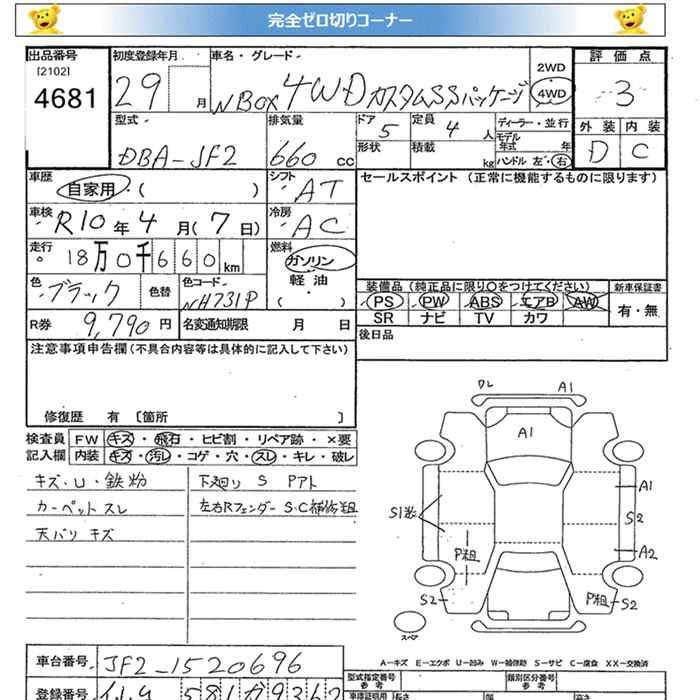 完全ゼロ切りコーナー
出品番号 初度登録年月 車名・グレード 2WD 評価点
[2102]
4681 29 月 NBOX 4WD カスタムSSパッケージ 4WD 3
型式 排気量 ドア 5 定員 4 人 ディーラー・並行 外装 内装
モデル年式 年
DBA-JF2 660 cc 形状 積載 kg ハンドル 左・右 D C
車歴 シフト セールスポイント (正常に機能するものに限ります)
自家用・( ) AT
車検 冷房
R10年4月(7日) AC
走行 燃料
18万0千660km ガソリン
色 色替 色コード 軽油
ブラック NH731P ( )
装備品 (純正品に限り○をつけてください) 新車保証書
PS PW ABS エアB AW 有・無
SR ナビ TV カワ
R券 9,790円 名変通知期限 月 日
後日品
注意事項申告欄(不具合内容等は具体的に記入して下さい)
修復歴 有 〔箇所 〕
検査員 FW キズ・飛石・ヒビ割・リペア跡・×要
記入欄 内装 キズ・汚レ・コゲ・穴・スレ・キレ・破レ
キズ・U・鉄粉 下廻り S Pアト
カーペットスレ 左右Rフェンダー S・C補修粗
天バリ キズ
ワレ A1
A1
A1
S1 S2
P粗 A2
S2 P粗 S2
スペア
A-キズ E-エクボ U-凹み W-補修跡 S-サビ C-腐食 XX-交換済
車台番号 JF2-1520696
型式指定番号 類別区分番号
参考 参考
登録番号 581 9362
車庫証明用 長さ 幅 高さ